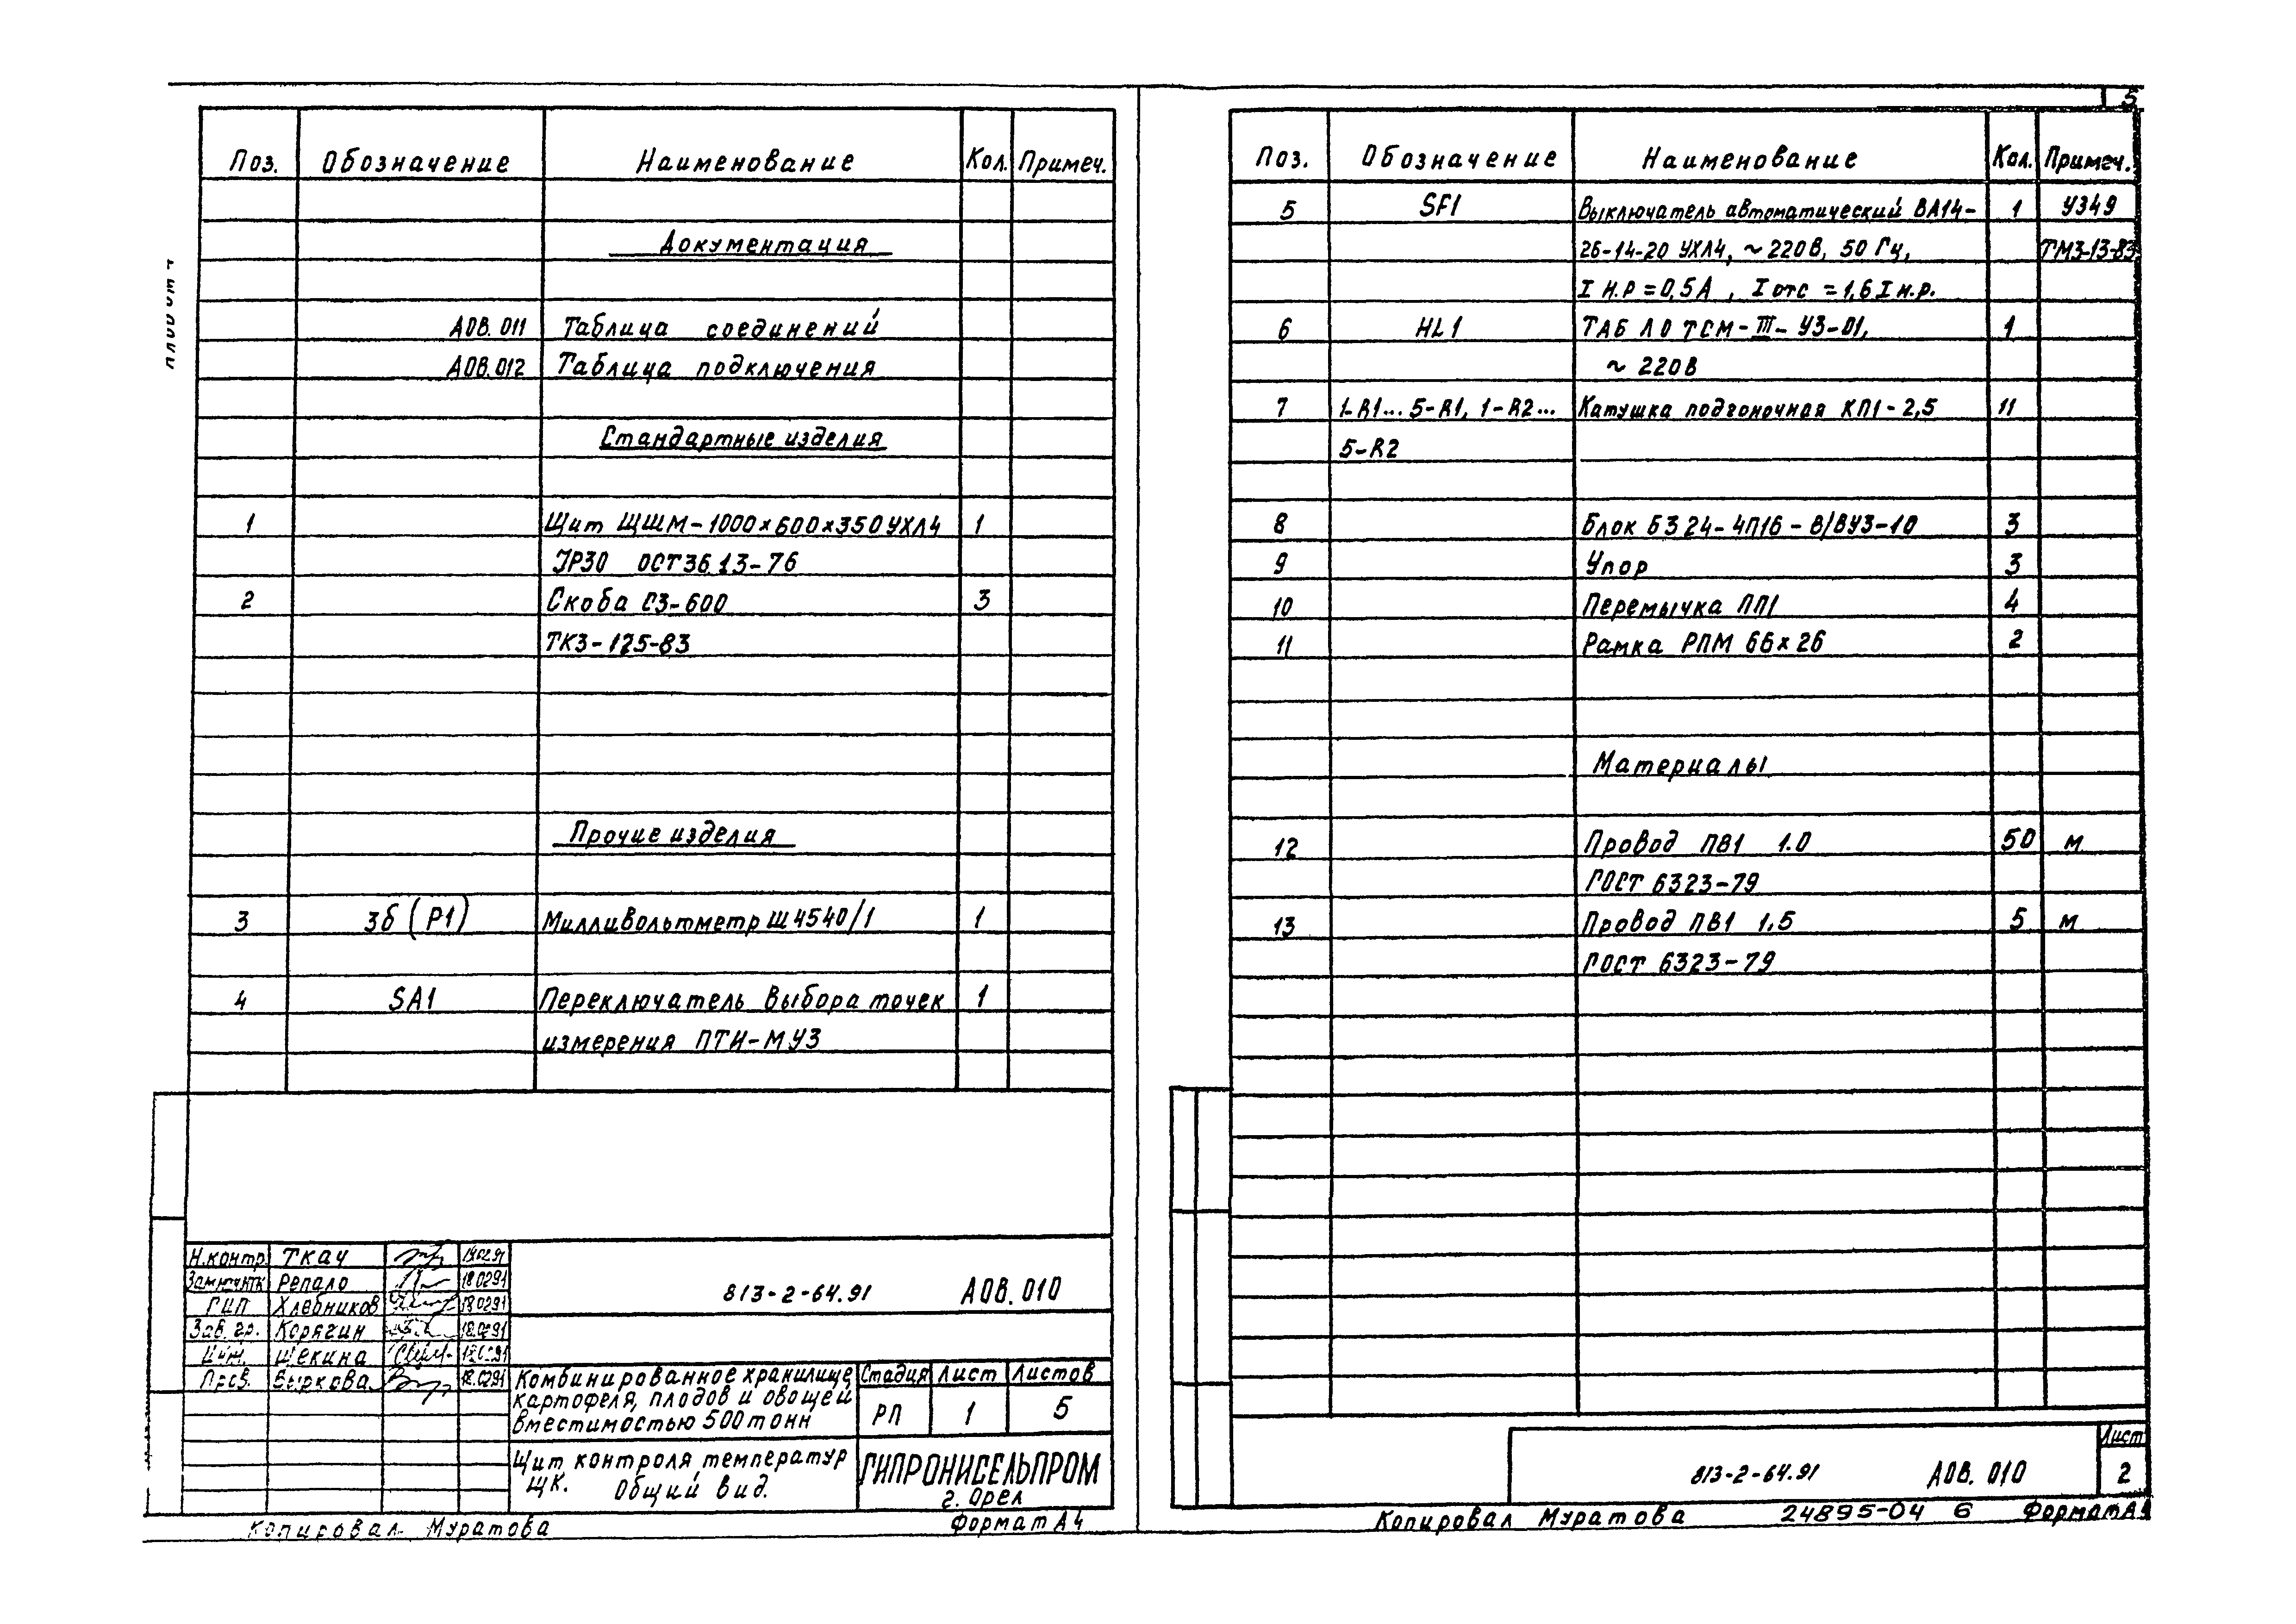 Поз. Обозначение Наименование Кол. Примеч.
Документация
АОВ.011 Таблица соединений
АОВ.012 Таблица подключения
Стандартные изделия
1 Щит ЩШМ-1000х600х350УХЛ4 1
IP30 ОСТ36.13-76
2 Скоба С3-600 3
ТК3-125-83
Прочие изделия
3 3б (Р1) Милливольтметр Ш4540/1 1
4 SA1 Переключатель выбора точек 1
измерения ПТИ-М У3
Н.контр. Ткач 19.02.91
Репало 18.02.91
ГИП Хлебников 18.02.91
Зав. гр. Корягин 18.02.91
Инж. Щекина 18.02.91
Пров. Выркова 18.02.91
813-2-64.91 АОВ.010
Комбинированное хранилище
картофеля, плодов и овощей
вместимостью 500 тонн
Стадия Лист Листов
РП 1 5
Щит контроля температур
ЩК. Общий вид.
ГИПРОНИСЕЛЬПРОМ
г. Орел
Копировал Муратова Формат А4
5
Поз. Обозначение Наименование Кол. Примеч.
5 SF1 Выключатель автоматический ВА14- 1 У349
26-14-20 УХЛ4, ~220В, 50 Гц, ТМ3-13-83
I н.р = 0,5А , I отс = 1,6 I н.р.
6 HL1 ТАБЛО ТСМ-III-У3-01, 1
~ 220В
7 1-R1... 5-R1, 1-R2... Катушка подгоночная КП1-2,5 11
5-R2
8 Блок Б324-4П16-В/ВУ3-10 3
9 Упор 3
10 Перемычка ПП1 4
11 Рамка РПМ 66х26 2
Материалы
12 Провод ПВ1 1.0 50 м
ГОСТ 6323-79
13 Провод ПВ1 1,5 5 м
ГОСТ 6323-79
813-2-64.91 АОВ.010
Лист
2
Копировал Муратова 24895-04 6 Формат А4